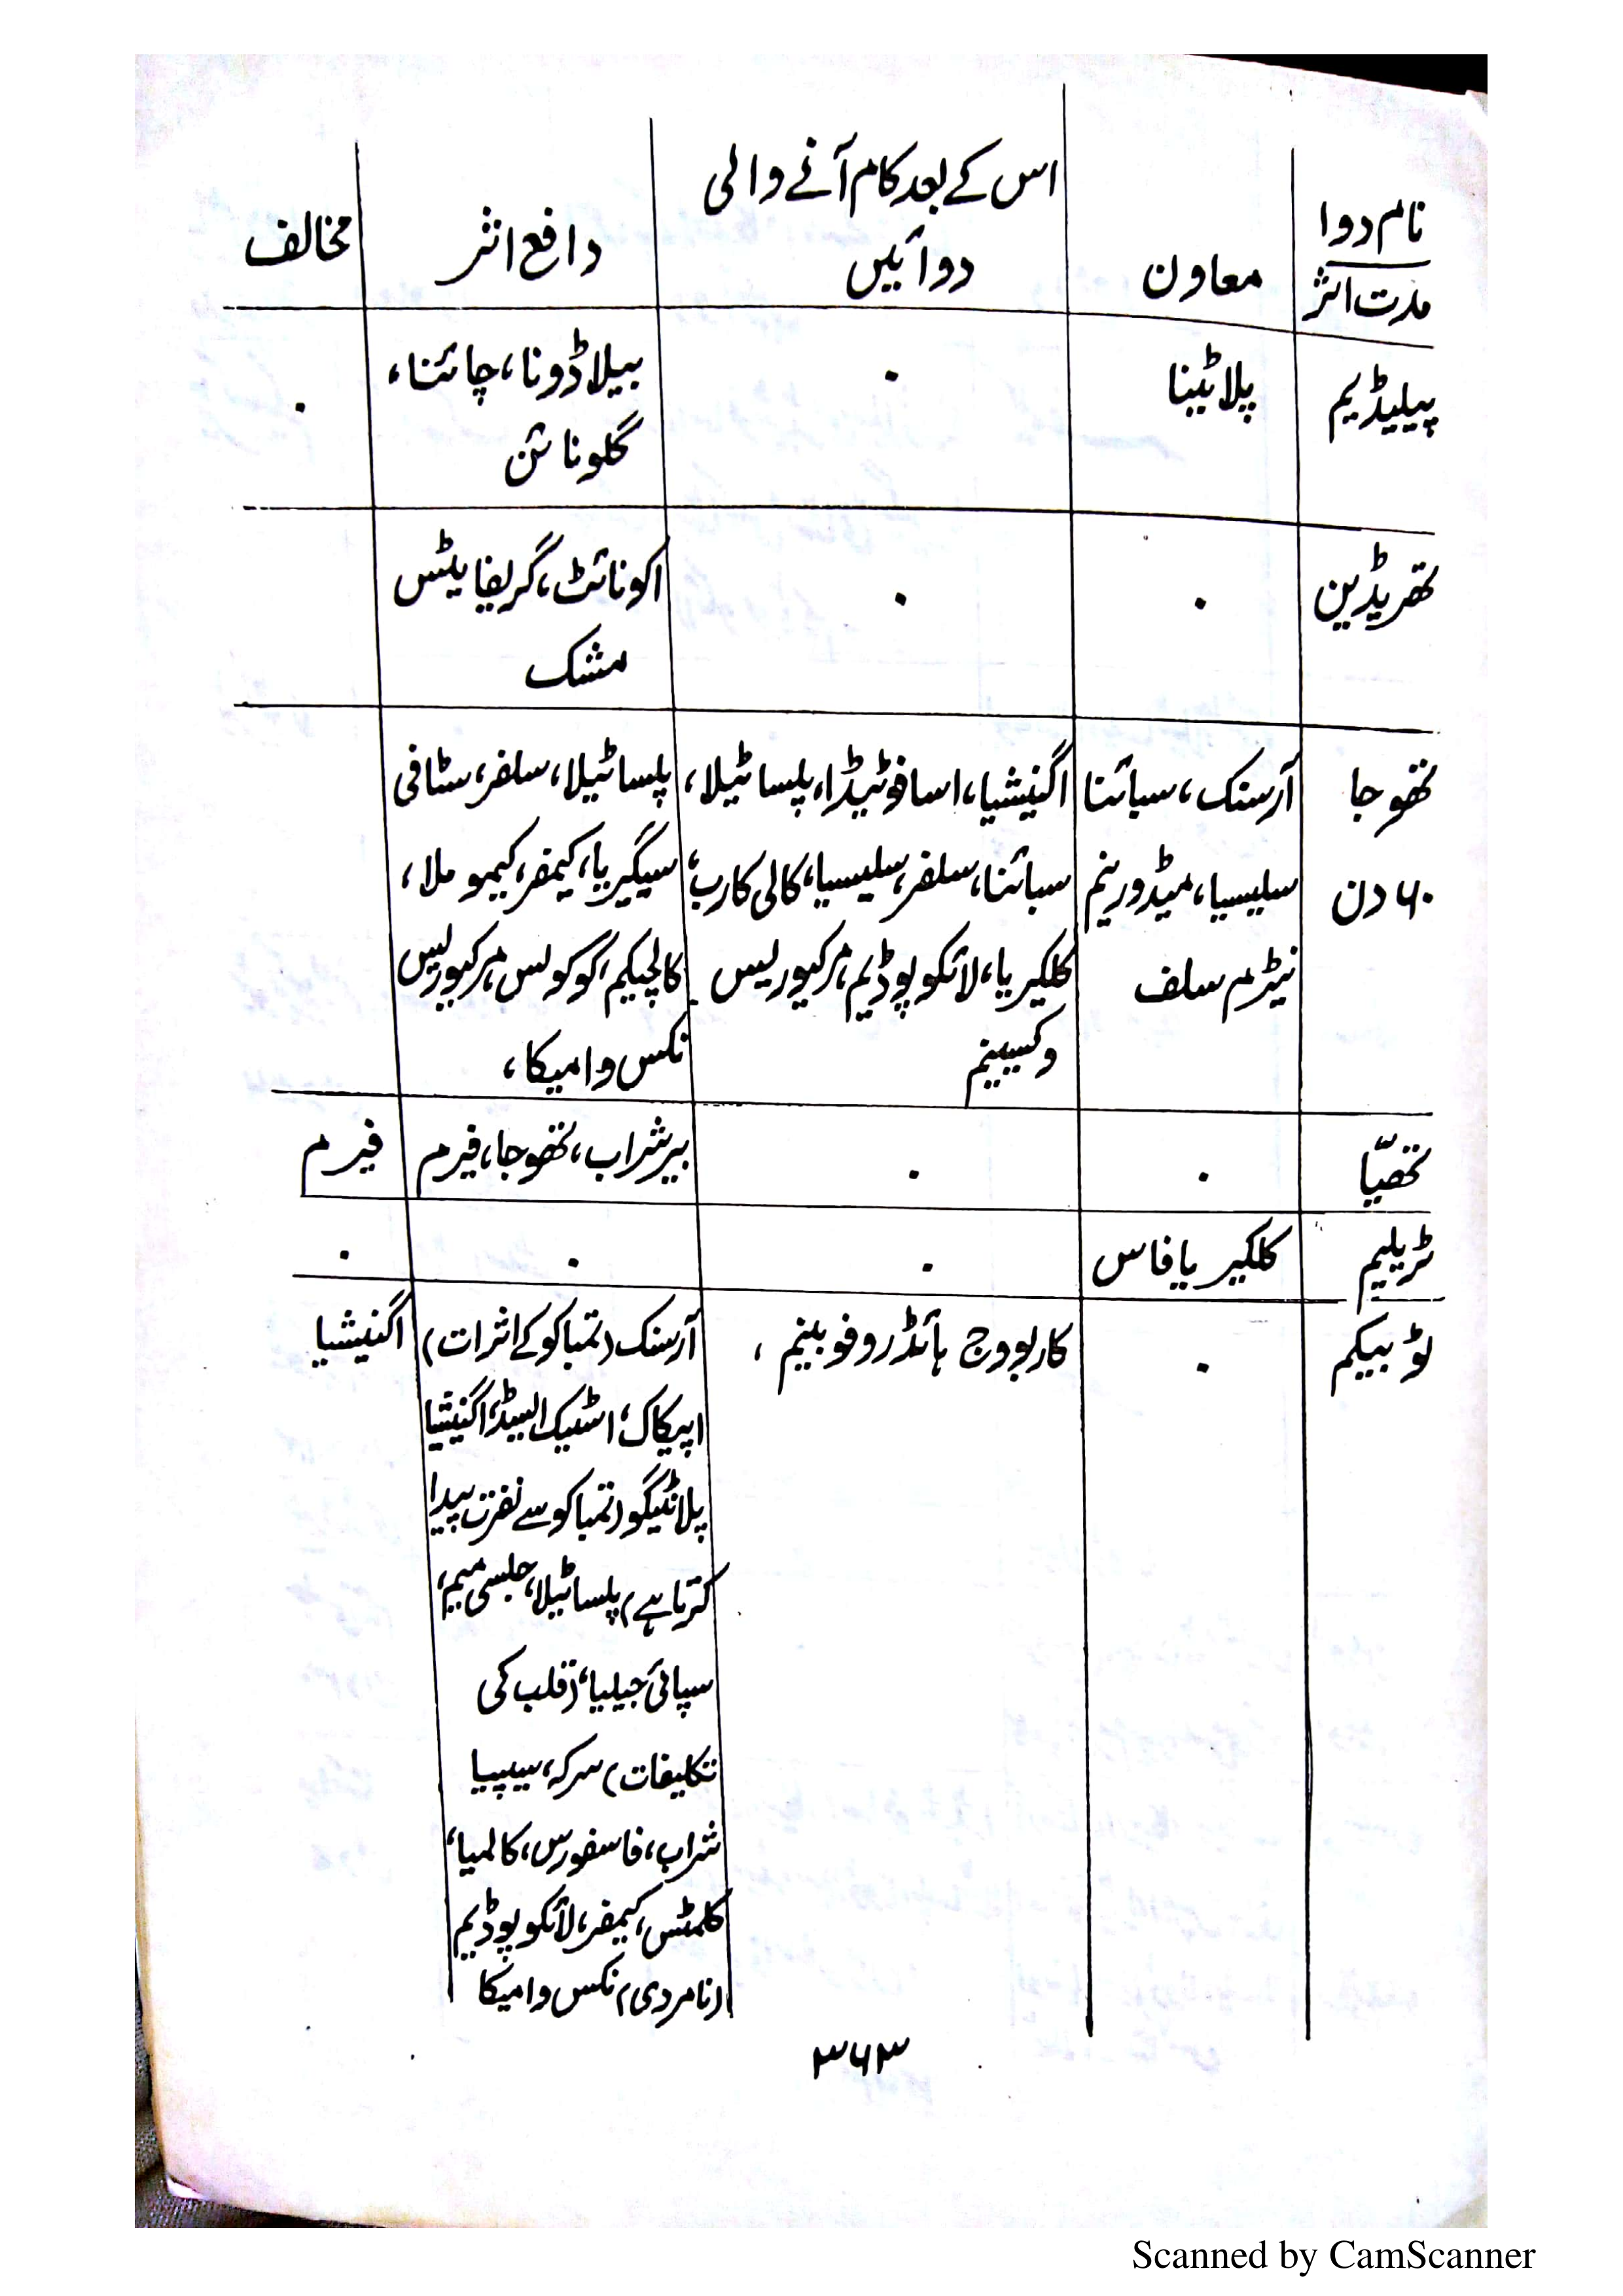 نام دوا
مدت اثر
معاون
اس کے بعد کام آنے والی
دوائیں
دافع اثر
مخالف
پیلیڈیم
پلاٹینا
۰
بیلاڈونا، چائنا،
گلونائن
۰
تھریڈین
۰
۰
اکونائٹ، گریفائیٹس
مشک
تھوجا
۶۰ دن
آرسنک، سبائنا
سلیسیا، میڈورینم
نیٹرم سلف
اگنیشیا، اسافوٹیڈا، پلساٹیلا،
سبائنا، سلفر، سلیسیا، کالی کارب،
کلکیریا، لائکوپوڈیم، مرکیوریس
وکسینیم
پلساٹیلا، سلفر، سٹافی
سیگیریا، کیمفر، کیموملا،
کالچیکم، کوکولس، مرکیوریس
نکس وامیکا،
تھپیّا
۰
۰
بیرشراب، تھوجا، فیرم
فیرم
ٹریلیم
کلکیریا فاس
۰
۰
۰
ٹوبیکم
۰
کاربووج ہائڈروفوبینم،
آرسنک (تمباکو کے اثرات)
اپیکاک، اسٹیک ایسڈ، اگنیشیا
پلانٹیگو (تمباکو سے نفرت پیدا
کرتا ہے) پلساٹیلا، جلسی میم،
سپائی جیلیا، (قلب کی
تکلیفات) سرکہ، سیپیا
شراب، فاسفورس، کالمیا،
کلمٹس، کیمفر، لائکوپوڈیم
(نامردی) نکس وامیکا
اگنیشیا
۳۶۳
Scanned by CamScanner